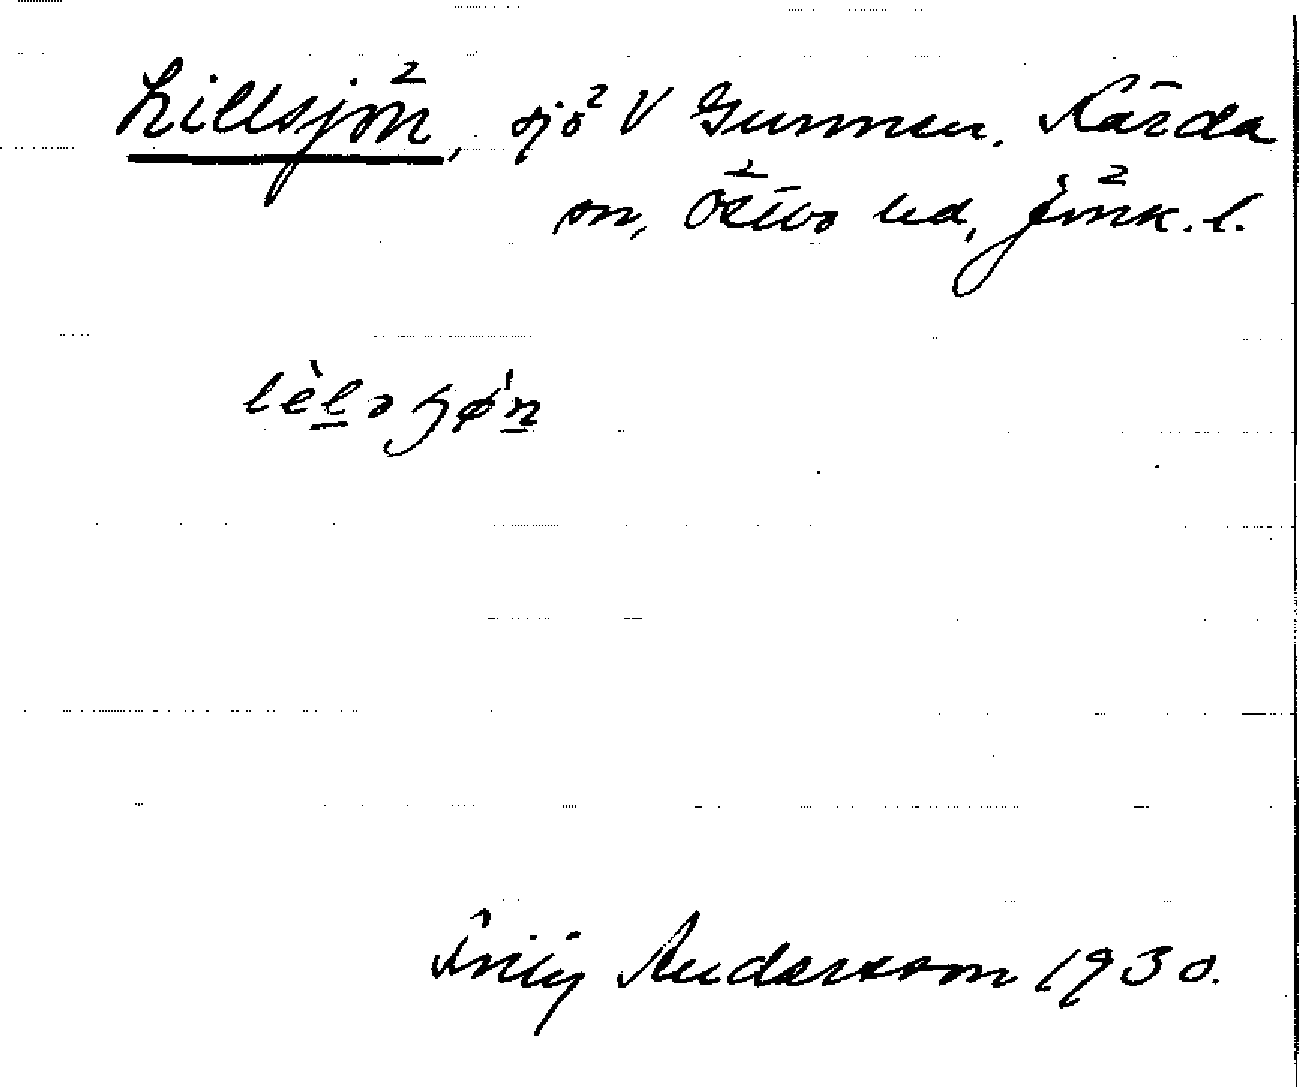 Lillsjön, sjö V Gunnen. Kärda
sn, Östbo hd, Jönk. l.
Thily Andersson 1930.